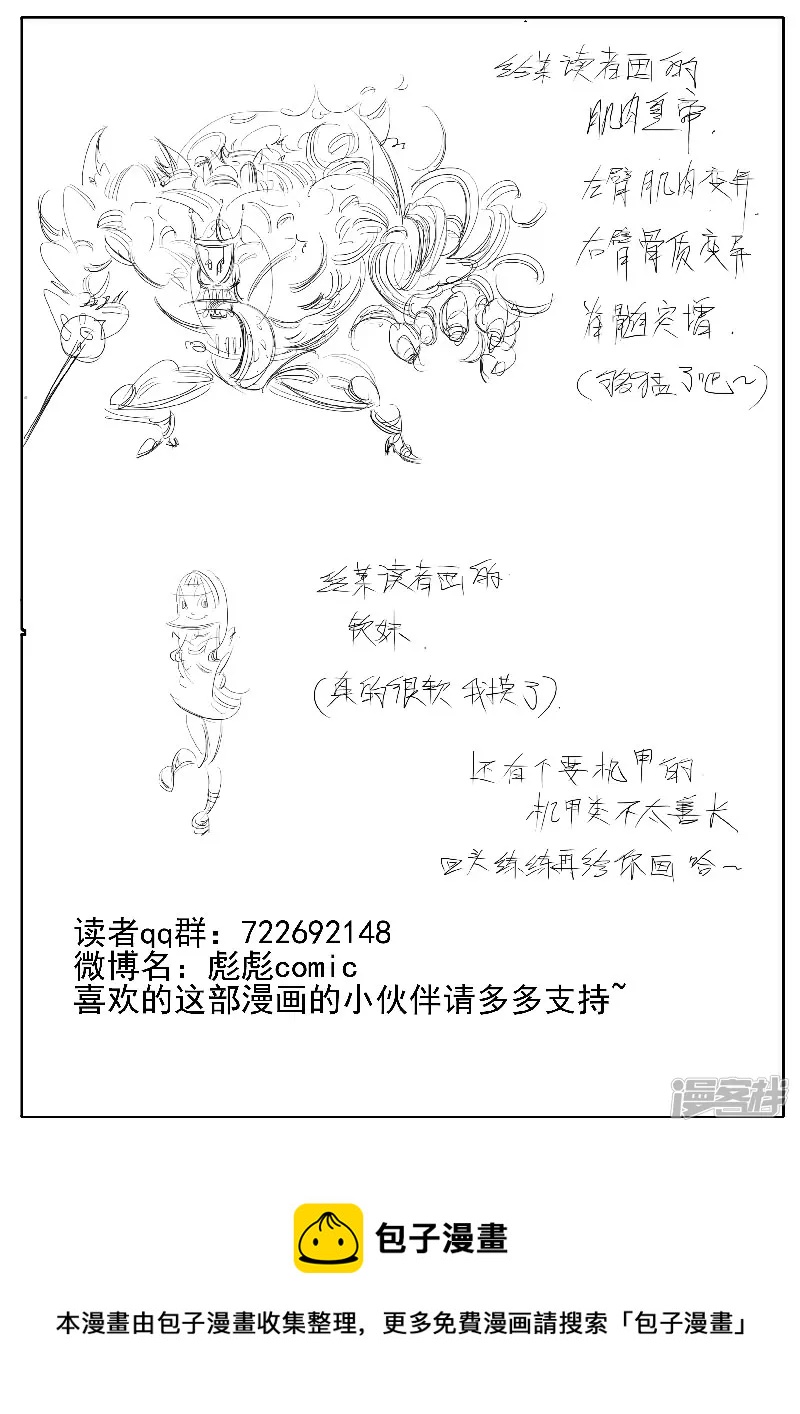 给某读者画的
肌肉皇帝.
左臂肌肉变异.
右臂骨质变异
脊髓突增.
(够猛了吧~)
给某读者画的
软妹.
(真的很软 我摸了).
还有个要机甲的
机甲类不太善长
回头练练再给你画哈~
读者qq群：722692148
微博名：彪彪comic
喜欢的这部漫画的小伙伴请多多支持~
漫客栈
包子漫畫
本漫畫由包子漫畫收集整理，更多免費漫画請搜索「包子漫畫」